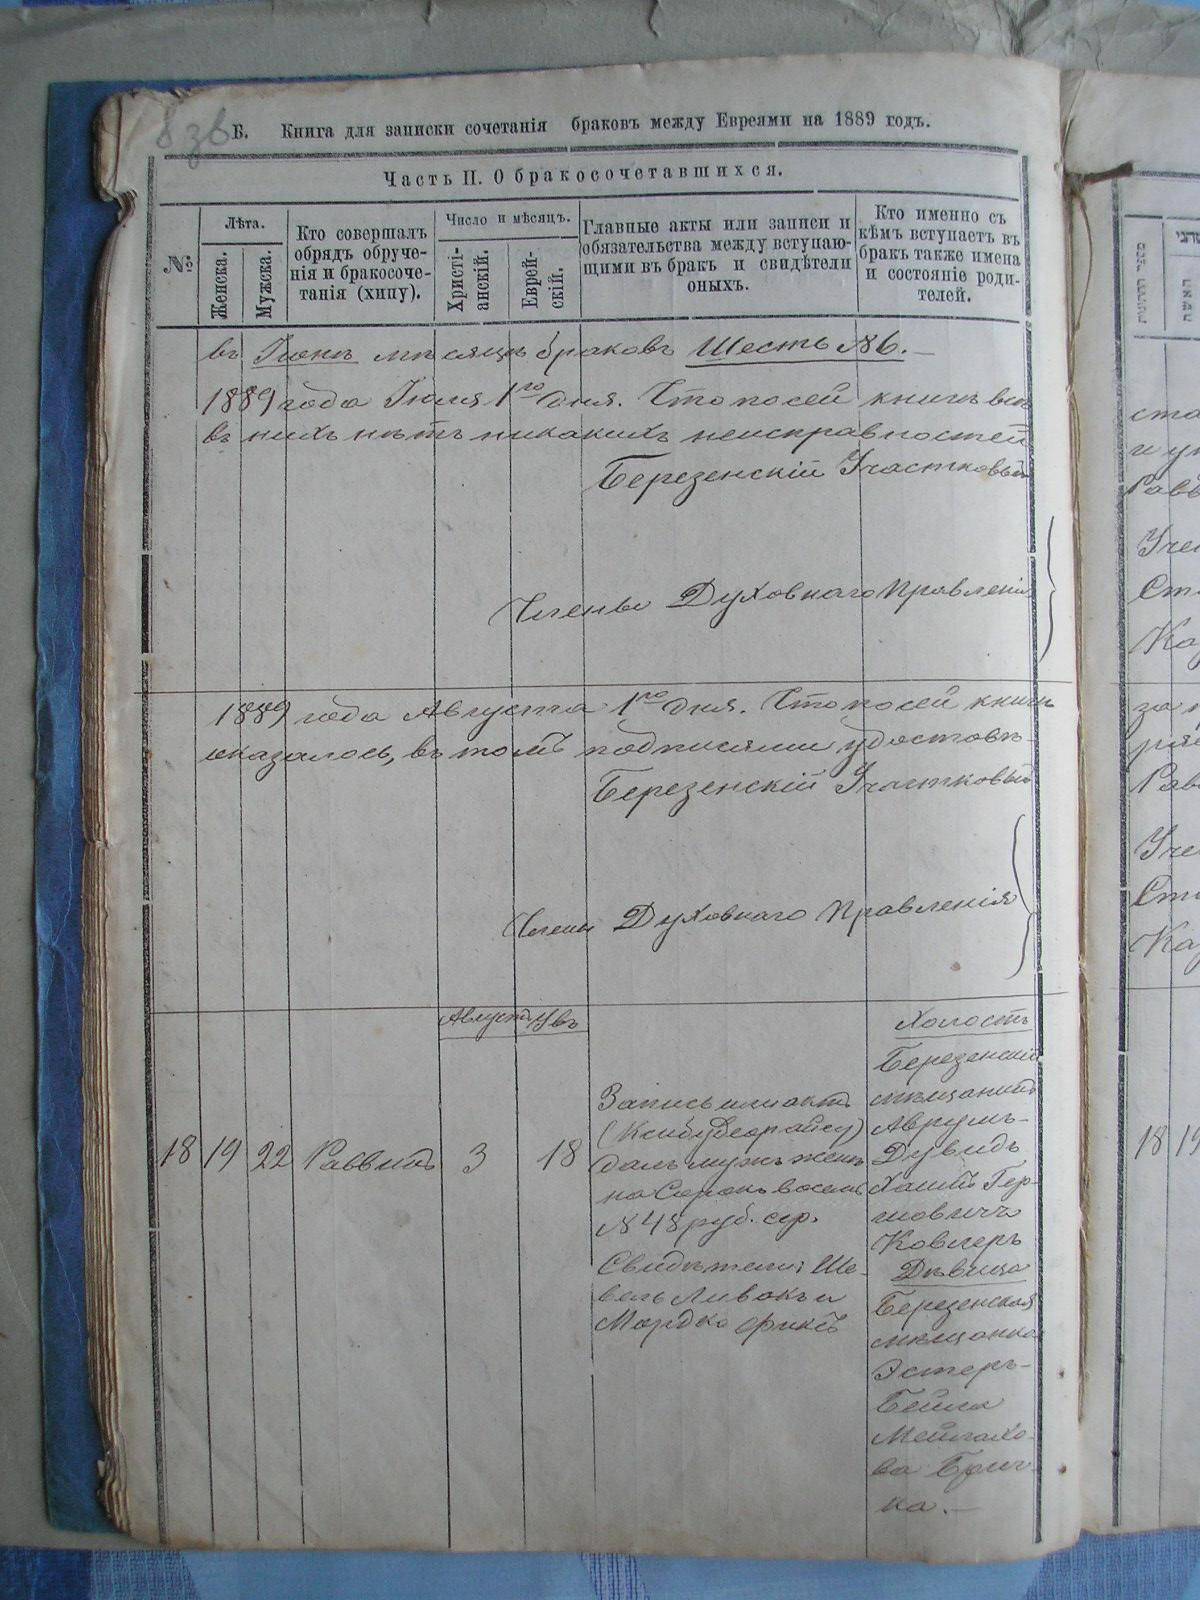 Б. Книга для записки сочетанія браковъ между Евреями на 1889 годъ.
Часть II. О бракосочетавшихся.
№.
Лѣта.
Женска.
Мужска.
Кто совершалъ
обрядъ обруче-
нія и бракосоче-
танія (хипу).
Число и мѣсяцъ.
Христі-
анскій.
Еврей-
скій.
Главные акты или записи и
обязательства между вступаю-
щими въ бракъ и свидѣтели
оныхъ.
Кто именно съ
кѣмъ вступаетъ въ
бракъ также имена
и состояніе роди-
телей.
въ Іюнѣ мѣсяцѣ браковъ Шесть №6.
1889 года Іюля 1го дня. Что по сей книгѣ
въ нихъ нѣтъ никакихъ неисправностей
Березенскій Участковый
Члены Духовнаго Правленія
1889 года Августа 1го дня. Что по сей книгѣ
оказалось, въ томъ подписями удостовѣ-
Березенскій Участковый
Члены Духовнаго Правленія
Августъ Увъ
18 19 22 Раввинъ 3 18
Запись или актъ
далъ мужъ женѣ
на Сорокъ восемь
№48 руб. сер.
Свидѣтели: Ше-
вель Ливакъ и
Мордко Фиксъ
Холостъ
Березенскій
мѣщанинъ
Аврумъ-
Дувидъ
Хаимъ Гер-
шовичъ
Ковлеръ
Дѣвица
Березенская
мѣщанка
Эстеръ-
Бейла
Мейлахо-
ва Брич-
ка.
Раве
Уче
Ста
Каз
за
Рав
Уче
Ста
Каз
18 19